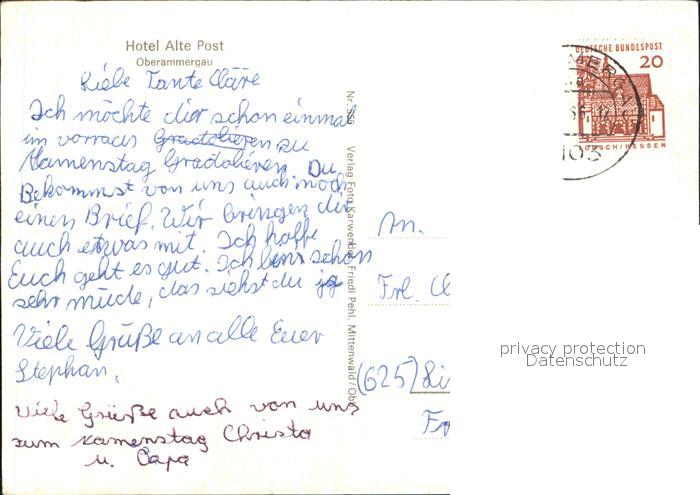 Hotel Alte Post
Oberammergau
Liebe Tante Cläre
Ich möchte dir schon einmal
im vorraus Gradolieren zu
Namenstag Gradolieren. Du
Bekommst von uns auch noch
einen Brief. Wir bringen dir
auch etwas mit. Ich hoffe
Euch geht es gut. Ich bin schon
sehr müde, das siehst du ja
Viele Grüße an alle Euer
Stephan.
Viele Grüße auch von uns
zum Namenstag Christa
u. Papa
Verlag Foto Karwendel, Friedl Pehl, Mittenwald/Obb
DEUTSCHE BUNDESPOST
20
LORSCH/HESSEN
An.
Frl. Cl
(625) Li
Fr
privacy protection
Datenschutz